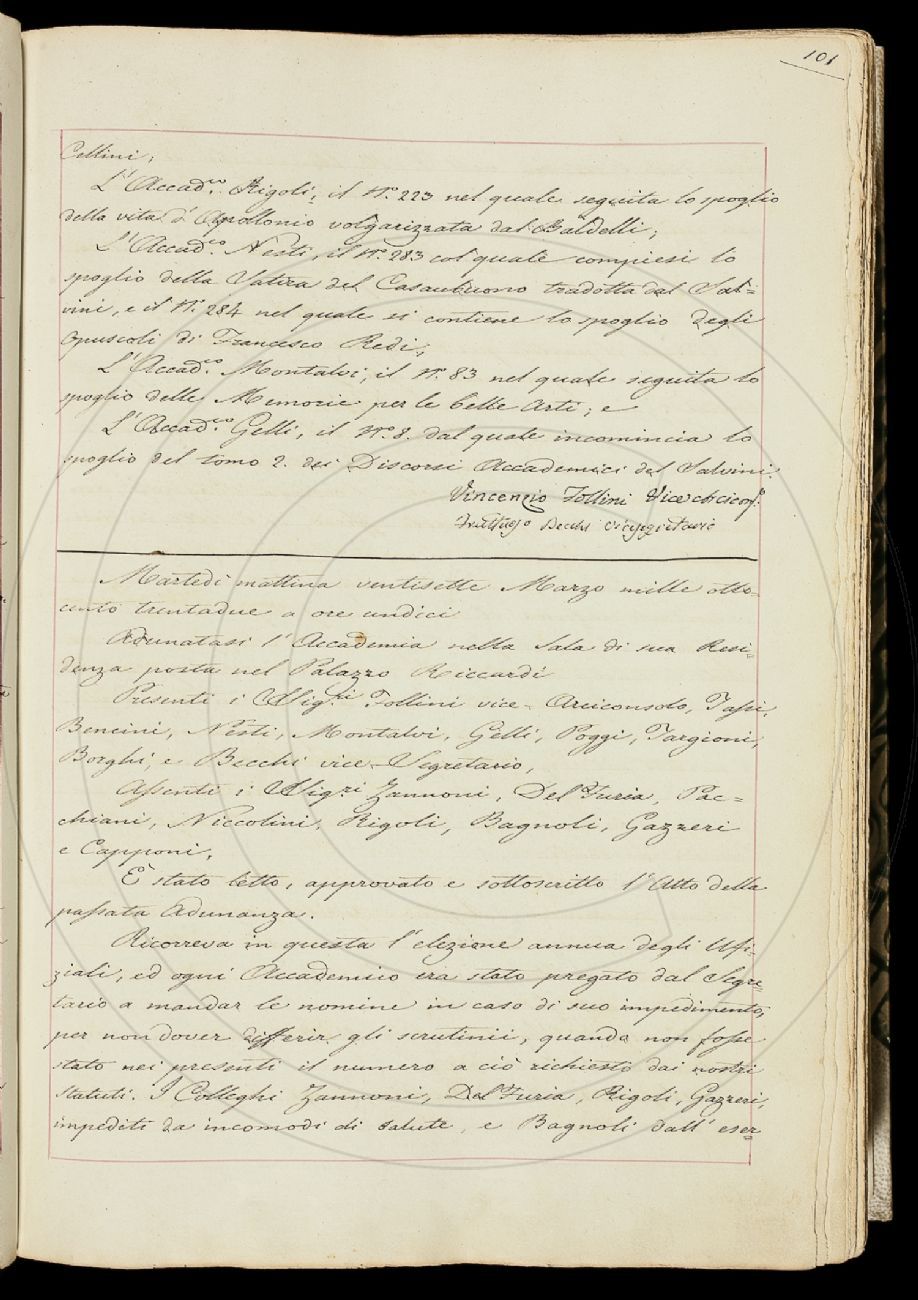 101
Cellini;
L'Accad.co Rigoli, il N.o 223 nel quale seguita lo spoglio
della vita d'Apollonio volgarizzata dal Baldelli;
L'Accad.co Nesti, il N.o 283 col quale compiesi lo
spoglio della Satira del Casaubuono tradotta dal Sal=
vini, e il N.o 284 nel quale si contiene lo spoglio degli
Opuscoli di Francesco Redi;
L'Accad.co Montalvi, il N.o 83 nel quale seguita lo
spoglio delle Memorie per le belle Arti; e
L'Accad.co Gelli, il N.o 8. dal quale incomincia lo
spoglio del tomo 2. dei Discorsi Accademici del Salvini.
Vincenzio Follini Vice
Fruttuoso Becchi Vicesegretario
Martedì mattina ventisette Marzo mille otto=
cento trentadue a ore undici
Adunatasi l'Accademia nella Sala di sua Resi=
denza posta nel Palazzo Riccardi
Presenti i SSig.ri Follini vice-Arciconsolo, Tassi,
Bencini, Nesti, Montalvi, Gelli, Poggi, Targioni,
Borghi, e Becchi vice-Segretario,
Assenti i SSig.ri Zannoni, Del Furia, Pac=
chiani, Niccolini, Rigoli, Bagnoli, Gazzeri
e Capponi,
È stato letto, approvato e sottoscritto l'Atto della
passata Adunanza.
Ricorreva in questa l'elezione annua degli Ufi=
ziali, ed ogni Accademico era stato pregato dal Segre=
tario a mandar le nomine in caso di suo impedimento,
per non dover differir gli scrutinii, quando non fosse
stato nei presenti il numero a ciò richiesto dai nostri
Statuti. I Colleghi Zannoni, Del Furia, Rigoli, Gazzeri,
impediti da incomodi di salute, e Bagnoli dall'eser=